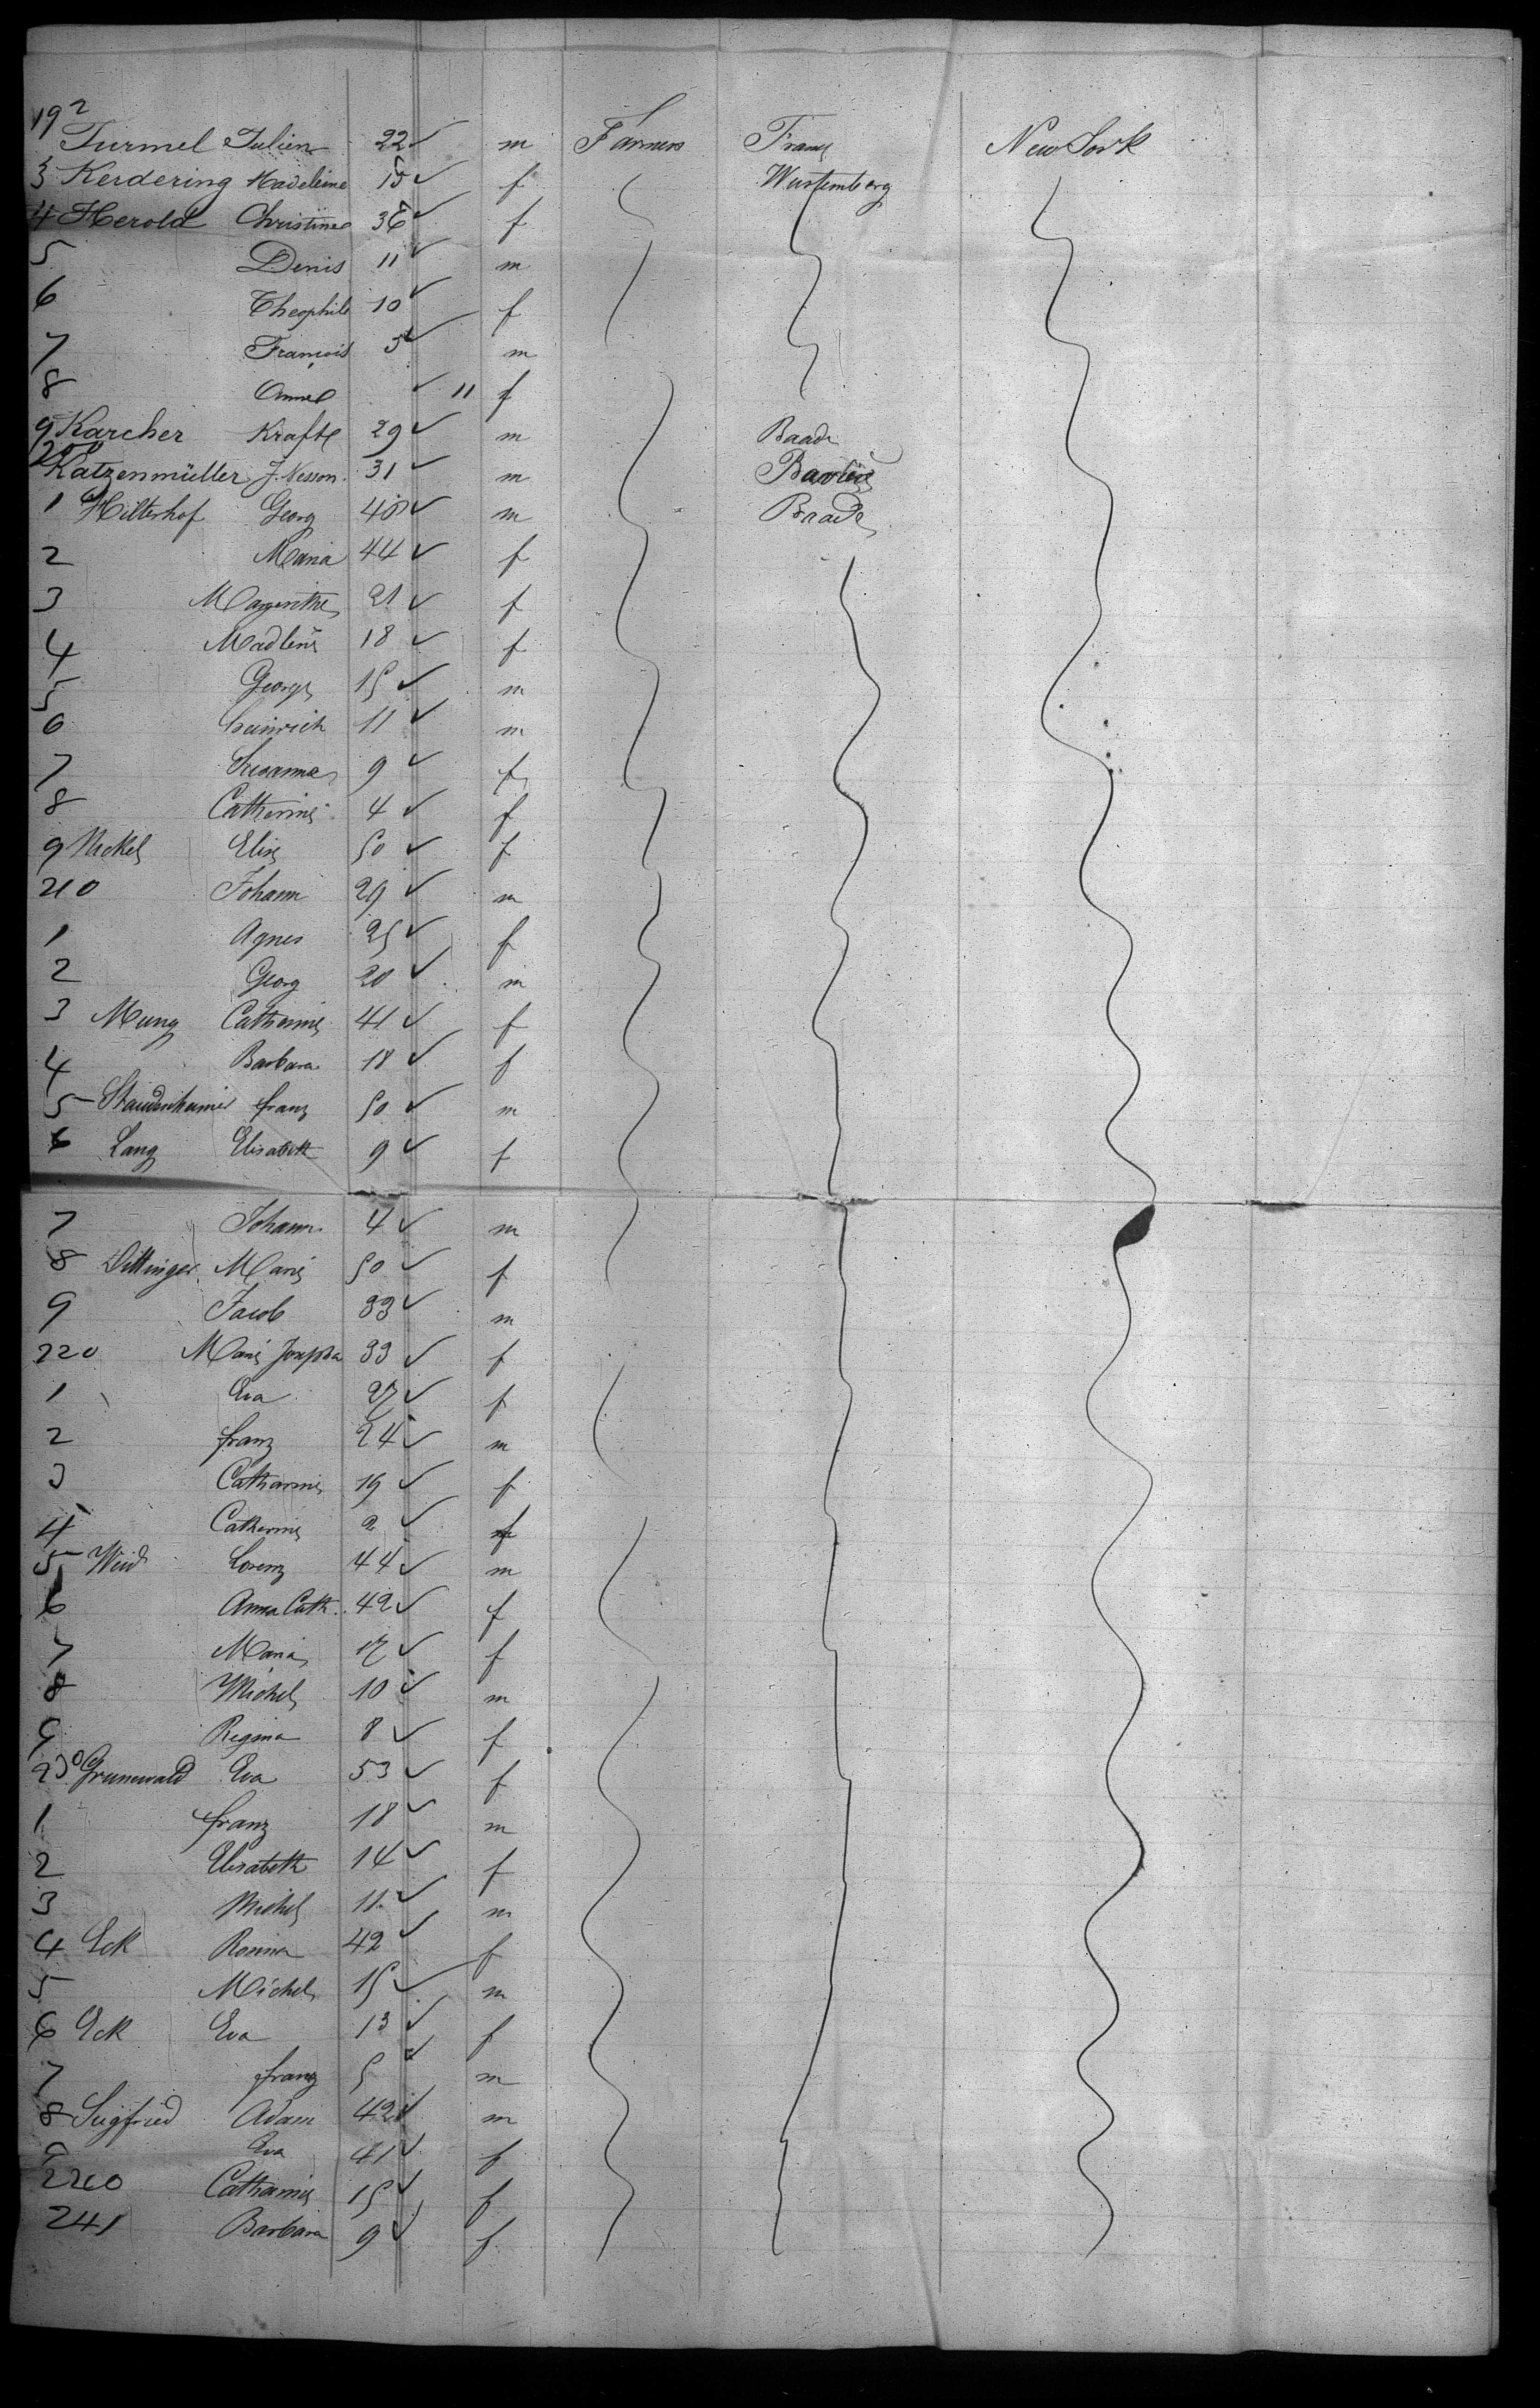 192 Turmel Julien 22 ✓ m Farmers France New York
3 Kerdering Madeleine 15 ✓ f Wurtemberg
4 Herold Christine 36 ✓ f
5 Denis 11 ✓ m
6 Theophile 10 ✓ f
7 François 3 ✓ m
8 Anne ✓ 11 f
9 Karcher Krafte 29 ✓ m Baade
200 Katzenmüller J. 31 ✓ m Baviere
1 Hilterhof Georg 40 ✓ m Baade
2 Maria 44 ✓ f
3 21 ✓ f
4 Madlene 18 ✓ f
5 George 15 ✓ m
6 heinrich 11 ✓ m
7 Susanna 9 ✓ f
8 Catherine 4 ✓ f
9 Nickel Elise 50 ✓ f
210 Johann 29 ✓ m
1 Agnes 25 ✓ f
2 Georg 20 ✓ m
3 Mung Catherine 41 ✓ f
4 Barbara 18 ✓ f
5 franz 50 ✓ m
6 Lang Elisabeth 9 ✓ f
7 Johann 4 ✓ m
8 Dittinger Marie 50 ✓ f
9 Jacob 33 ✓ m
220 Marie Josepha 33 ✓ f
1 Eva 27 ✓ f
2 franz 24 ✓ m
3 Catharine 19 ✓ f
4 Catherine 2 ✓ f
5 Weid Lorenz 44 ✓ m
6 Anna Cath. 42 ✓ f
7 Maria 17 ✓ f
8 Michel 10 ✓ m
9 Regina 8 ✓ f
230 Grunewald Eva 53 ✓ f
1 franz 18 ✓ m
2 Elisabeth 14 ✓ f
3 Michel 11 ✓ m
4 Eck Rosina 42 ✓ f
5 Michel 15 ✓ m
6 Eck Eva 13 ✓ f
7 franz 5 ✓ m
8 Siegfried Adam 42 ✓ m
9 Eva 41 ✓ f
2240 Catharine 15 ✓ f
241 Barbara 9 ✓ f